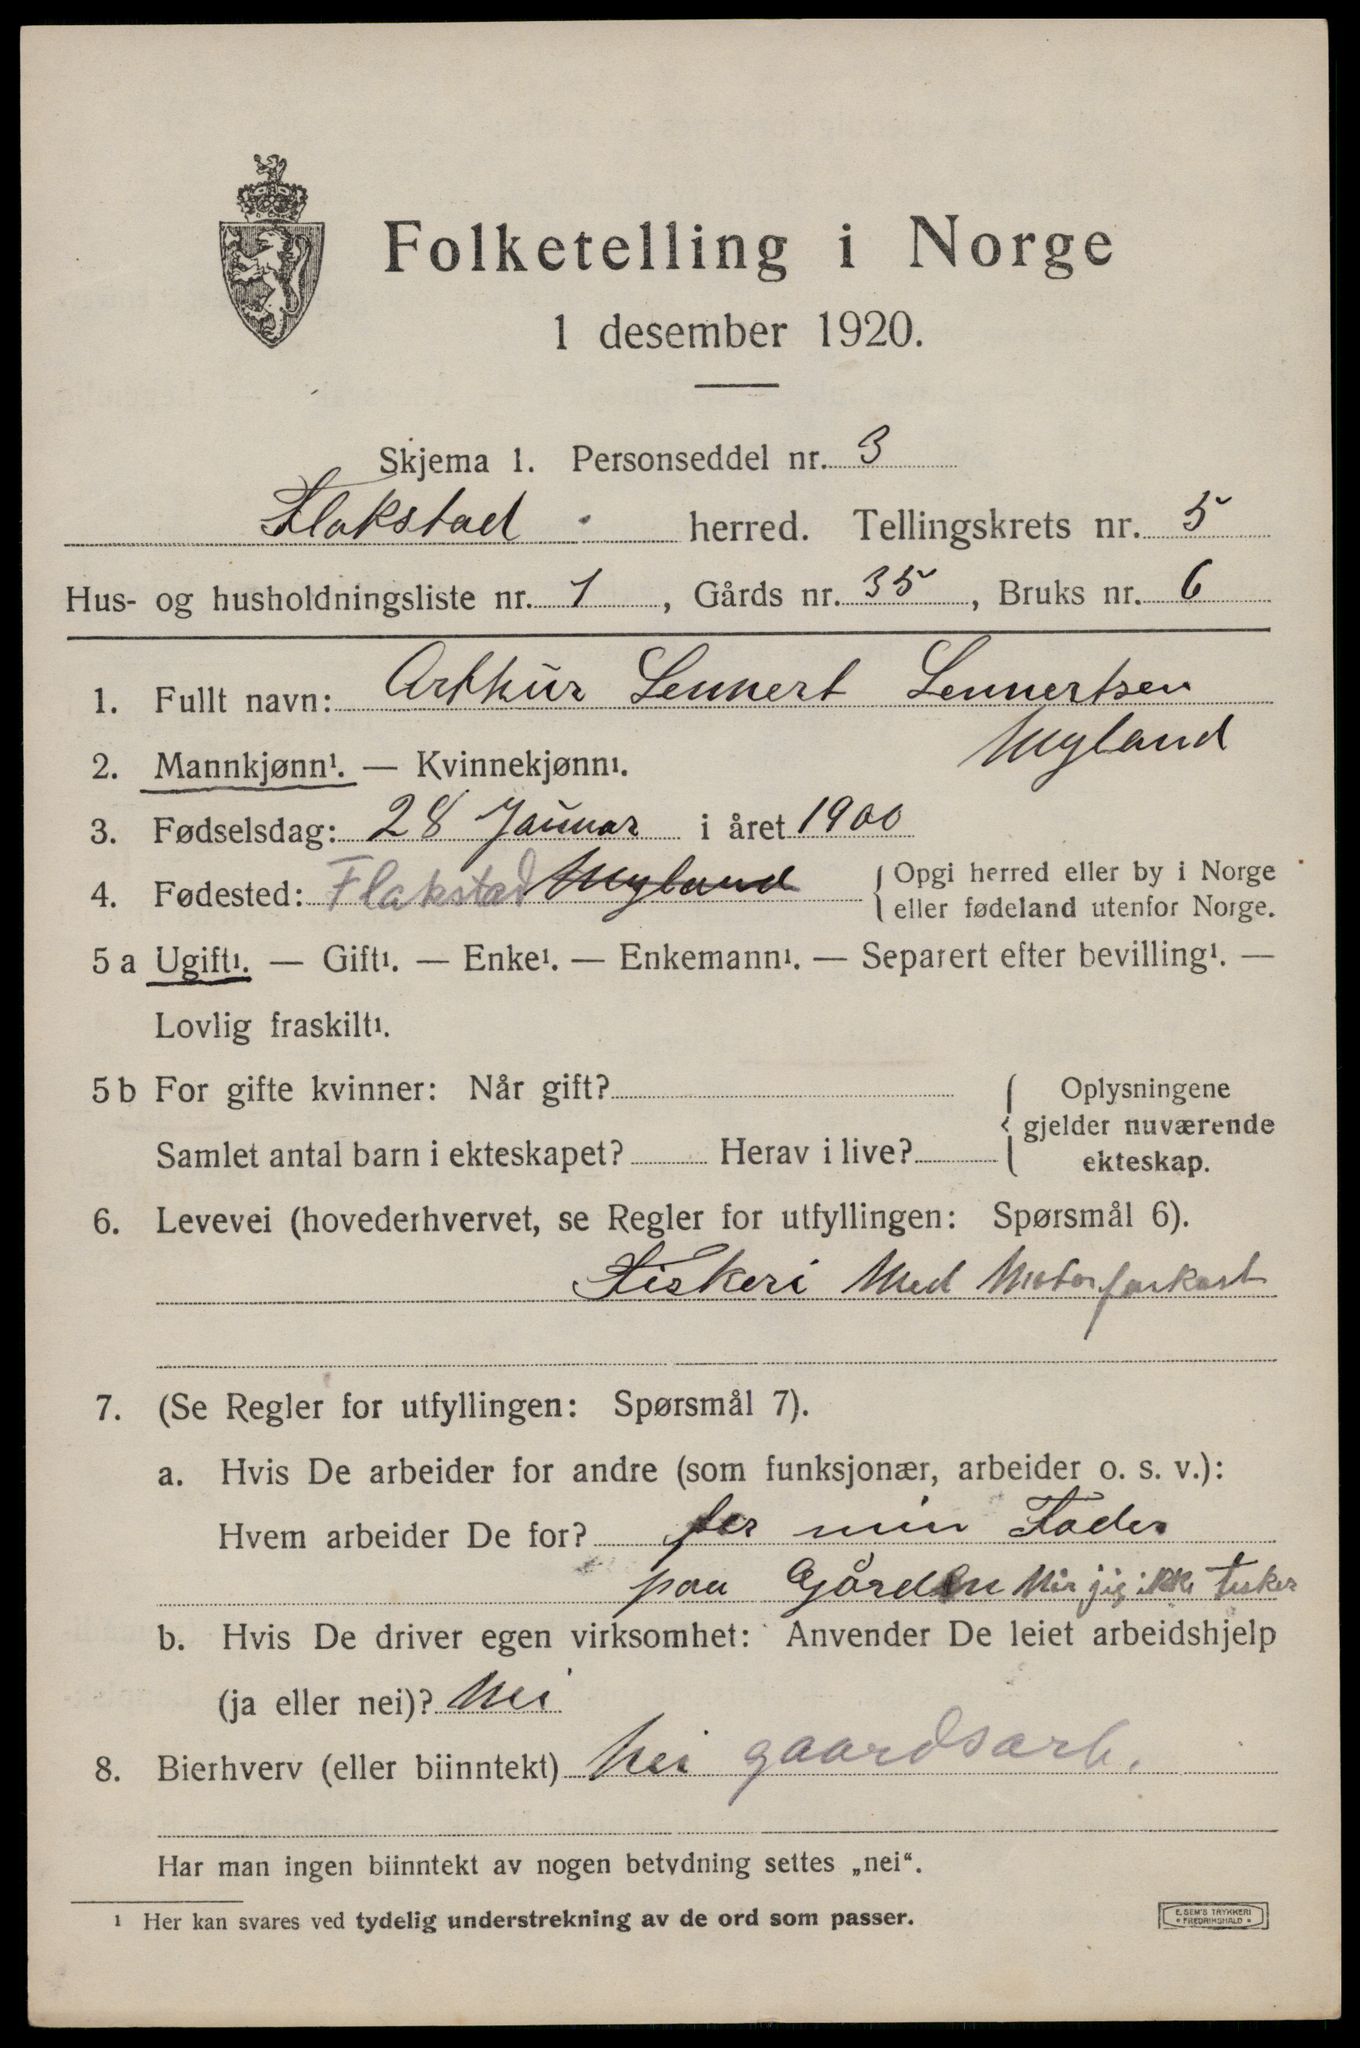 Folketelling i Norge
1 desember 1920.
Skjema 1. Personseddel nr. 3
Flakstad herred. Tellingskrets nr. 5
Hus- og husholdningsliste nr. 1, Gårds nr. 35, Bruks nr. 6
1. Fullt navn: Arthur Lennert Lennertsen
Myland
2. Mannkjønn¹. — Kvinnekjønn¹.
3. Fødselsdag: 28 Januar i året 1900
4. Fødested: Flakstad Myland { Opgi herred eller by i Norge
eller fødeland utenfor Norge.
5 a Ugift¹. — Gift¹. — Enke¹. — Enkemann¹. — Separert efter bevilling¹. —
Lovlig fraskilt¹.
5 b For gifte kvinner: Når gift?
Samlet antal barn i ekteskapet? Herav i live?
{ Oplysningene
gjelder nuværende
ekteskap.
6. Levevei (hovederhvervet, se Regler for utfyllingen: Spørsmål 6).
Fiskeri Med Motorfarkost
7. (Se Regler for utfyllingen: Spørsmål 7).
a. Hvis De arbeider for andre (som funksjonær, arbeider o. s. v.):
Hvem arbeider De for? for min Fader
paa Gården jig ikke
b. Hvis De driver egen virksomhet: Anvender De leiet arbeidshjelp
(ja eller nei)? Nei
8. Bierhverv (eller biinntekt) Nei gaardsarb.
Har man ingen biinntekt av nogen betydning settes „nei“.
¹ Her kan svares ved tydelig understrekning av de ord som passer.
E. SEM'S TRYKKERI
FREDRIKSHALD